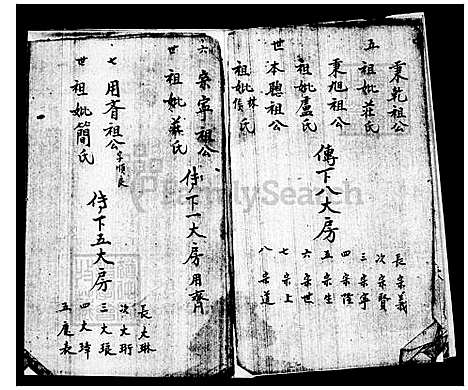 秉乾祖公
五 祖妣莊氏
秉旭祖公
祖妣盧氏
世 本聰祖公
祖妣林氏
侯
傳下八大房
長 宗義
次 宗賢
三 宗寧
四 宗陞
五 宗生
六 宗世
七 宗上
八 宗道
六 宗寧祖公
世 祖妣蔡氏
傳下一大房用齊
七 用齊祖公字順良
世 祖妣簡氏
傳下五大房
長 大琳
次 大珩
三 大琅
四 大璋
五 應表
FamilySearch